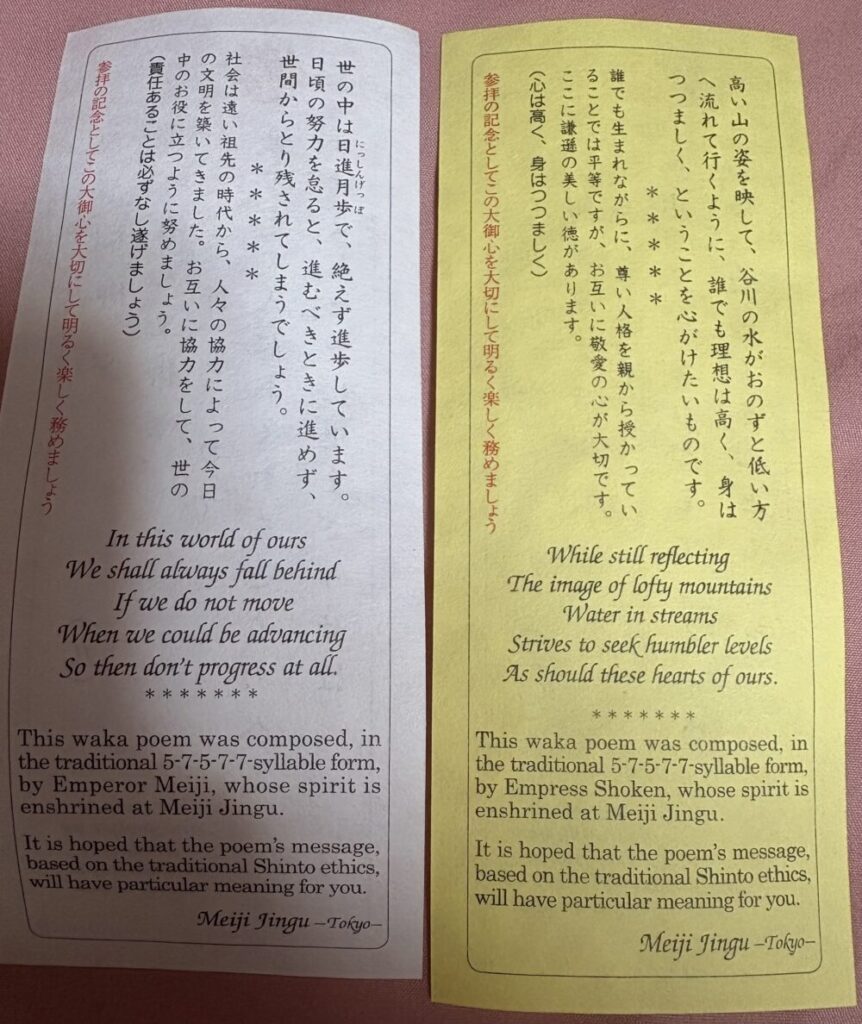 世の中は日進月歩で、絶えず進歩しています。
にっしんげっぽ
日頃の努力を怠ると、進むべきときに進めず、
世間からとり残されてしまうでしょう。
*****
社会は遠い祖先の時代から、人々の協力によって今日
の文明を築いてきました。お互いに協力をして、世の
中のお役に立つように努めましょう。
(責任あることは必ずなし遂げましょう)
参拝の記念としてこの大御心を大切にして明るく楽しく務めましょう
In this world of ours
We shall always fall behind
If we do not move
When we could be advancing
So then don't progress at all.
*******
This waka poem was composed, in
the traditional 5-7-5-7-7-syllable form,
by Emperor Meiji, whose spirit is
enshrined at Meiji Jingu.
It is hoped that the poem's message,
based on the traditional Shinto ethics,
will have particular meaning for you.
Meiji Jingu –Tokyo–
高い山の姿を映して、谷川の水がおのずと低い方
へ流れて行くように、誰でも理想は高く、身は
つつましく、ということを心がけたいものです。
*****
誰でも生まれながらに、尊い人格を親から授かってい
ることでは平等ですが、お互いに敬愛の心が大切です。
ここに謙遜の美しい徳があります。
(心は高く、身はつつましく)
参拝の記念としてこの大御心を大切にして明るく楽しく務めましょう
While still reflecting
The image of lofty mountains
Water in streams
Strives to seek humbler levels
As should these hearts of ours.
*******
This waka poem was composed, in
the traditional 5-7-5-7-7-syllable form,
by Empress Shoken, whose spirit is
enshrined at Meiji Jingu.
It is hoped that the poem's message,
based on the traditional Shinto ethics,
will have particular meaning for you.
Meiji Jingu –Tokyo–